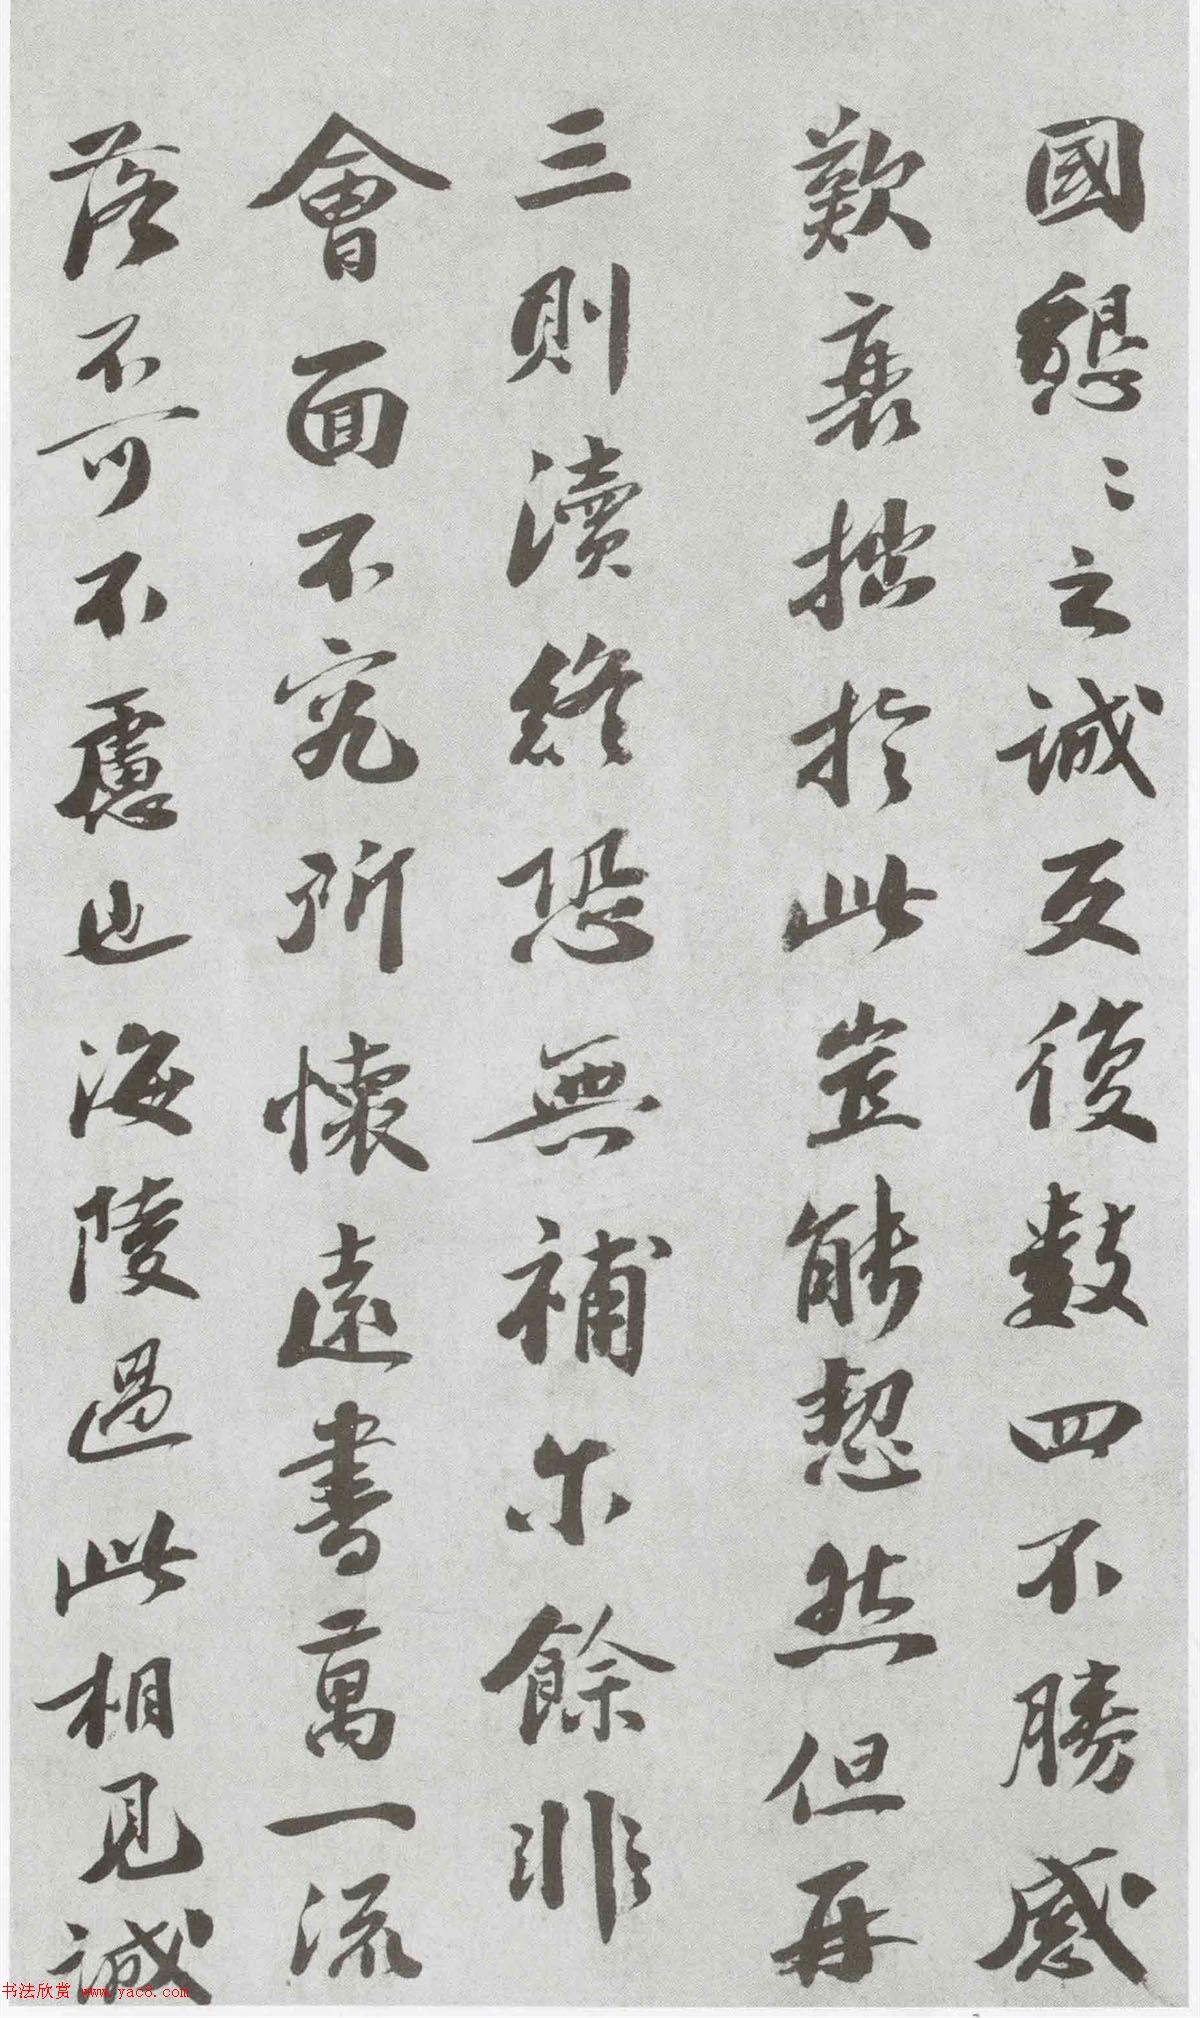 國懇〻之誠反復數四不勝感
歎衰拙於此豈能恝然但再
三則瀆終恐無補尔餘非
會面不究所懷遠書萬一流
落不可不慮也海陵過此相見誠
书法欣赏 www.yac8.com